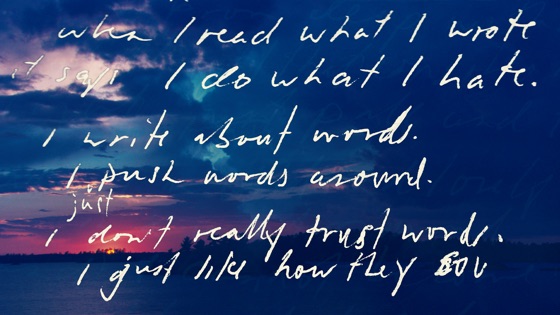 when I read what I wrote
it says I do what I hate.
I write about words.
I push words around.
just
I don't really trust words.
I just like how they sou